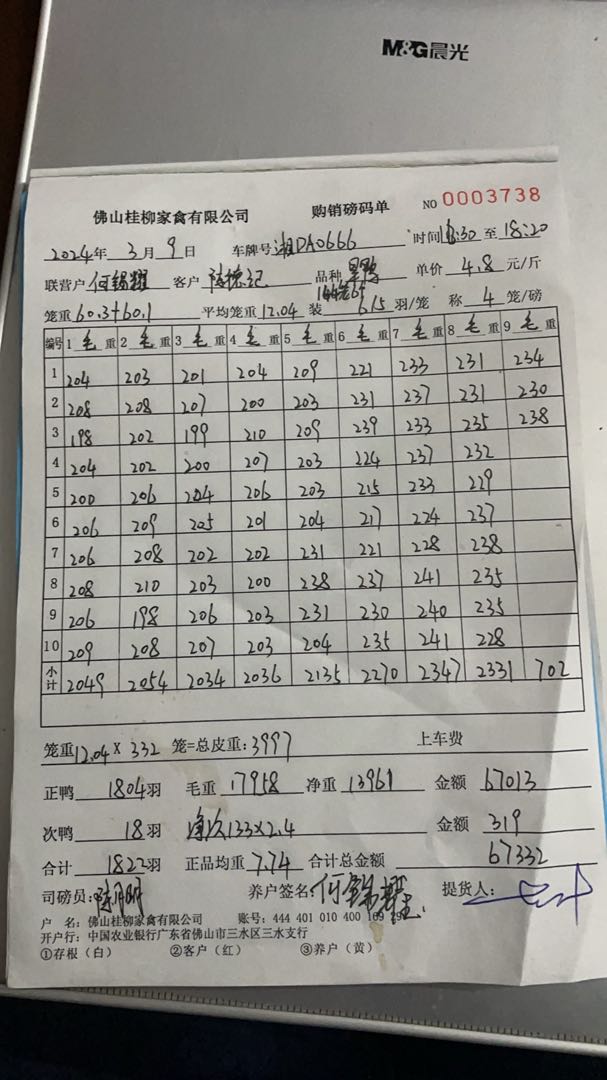 M&G晨光
佛山桂柳家禽有限公司 购销磅码单 NO 0003738
2024年 3月 9日 车牌号 湘DA0666 时间 16:30 至 18:20
联营户 何锦耀 客户 品种 单价 4.8 元/斤
笼重 60.3+60.1 平均笼重 12.04 装 6.15 羽/笼 称 4 笼/磅
编号 1 毛 重 2 毛 重 3 毛 重 4 毛 重 5 毛 重 6 毛 重 7 毛 重 8 毛 重 9 毛 重
1 204 203 201 204 209 221 233 231 234
2 208 208 207 200 203 231 237 231 230
3 198 202 199 210 209 239 233 235 238
4 204 202 200 207 203 224 237 232
5 200 206 204 206 203 215 233 229
6 206 209 205 201 204 217 224 237
7 206 208 202 202 231 221 228 238
8 208 210 203 200 238 237 241 235
9 206 198 206 203 231 230 240 235
10 209 208 207 203 204 235 241 228
小计 2049 2054 2034 2036 2135 2270 2347 2331 702
笼重 12.04 × 332 笼=总皮重: 3997 上车费
正鸭 1804 羽 毛重 17958 净重 13961 金额 67013
次鸭 18 羽 133×2.4 金额 319
合计 1822 羽 正品均重 7.74 合计总金额 67332
司磅员: 养户签名: 何锦耀 提货人:
户 名: 佛山桂柳家禽有限公司 账号: 444 401 010 400 169
开户行: 中国农业银行广东省佛山市三水区三水支行
①存根（白） ②客户（红） ③养户（黄）